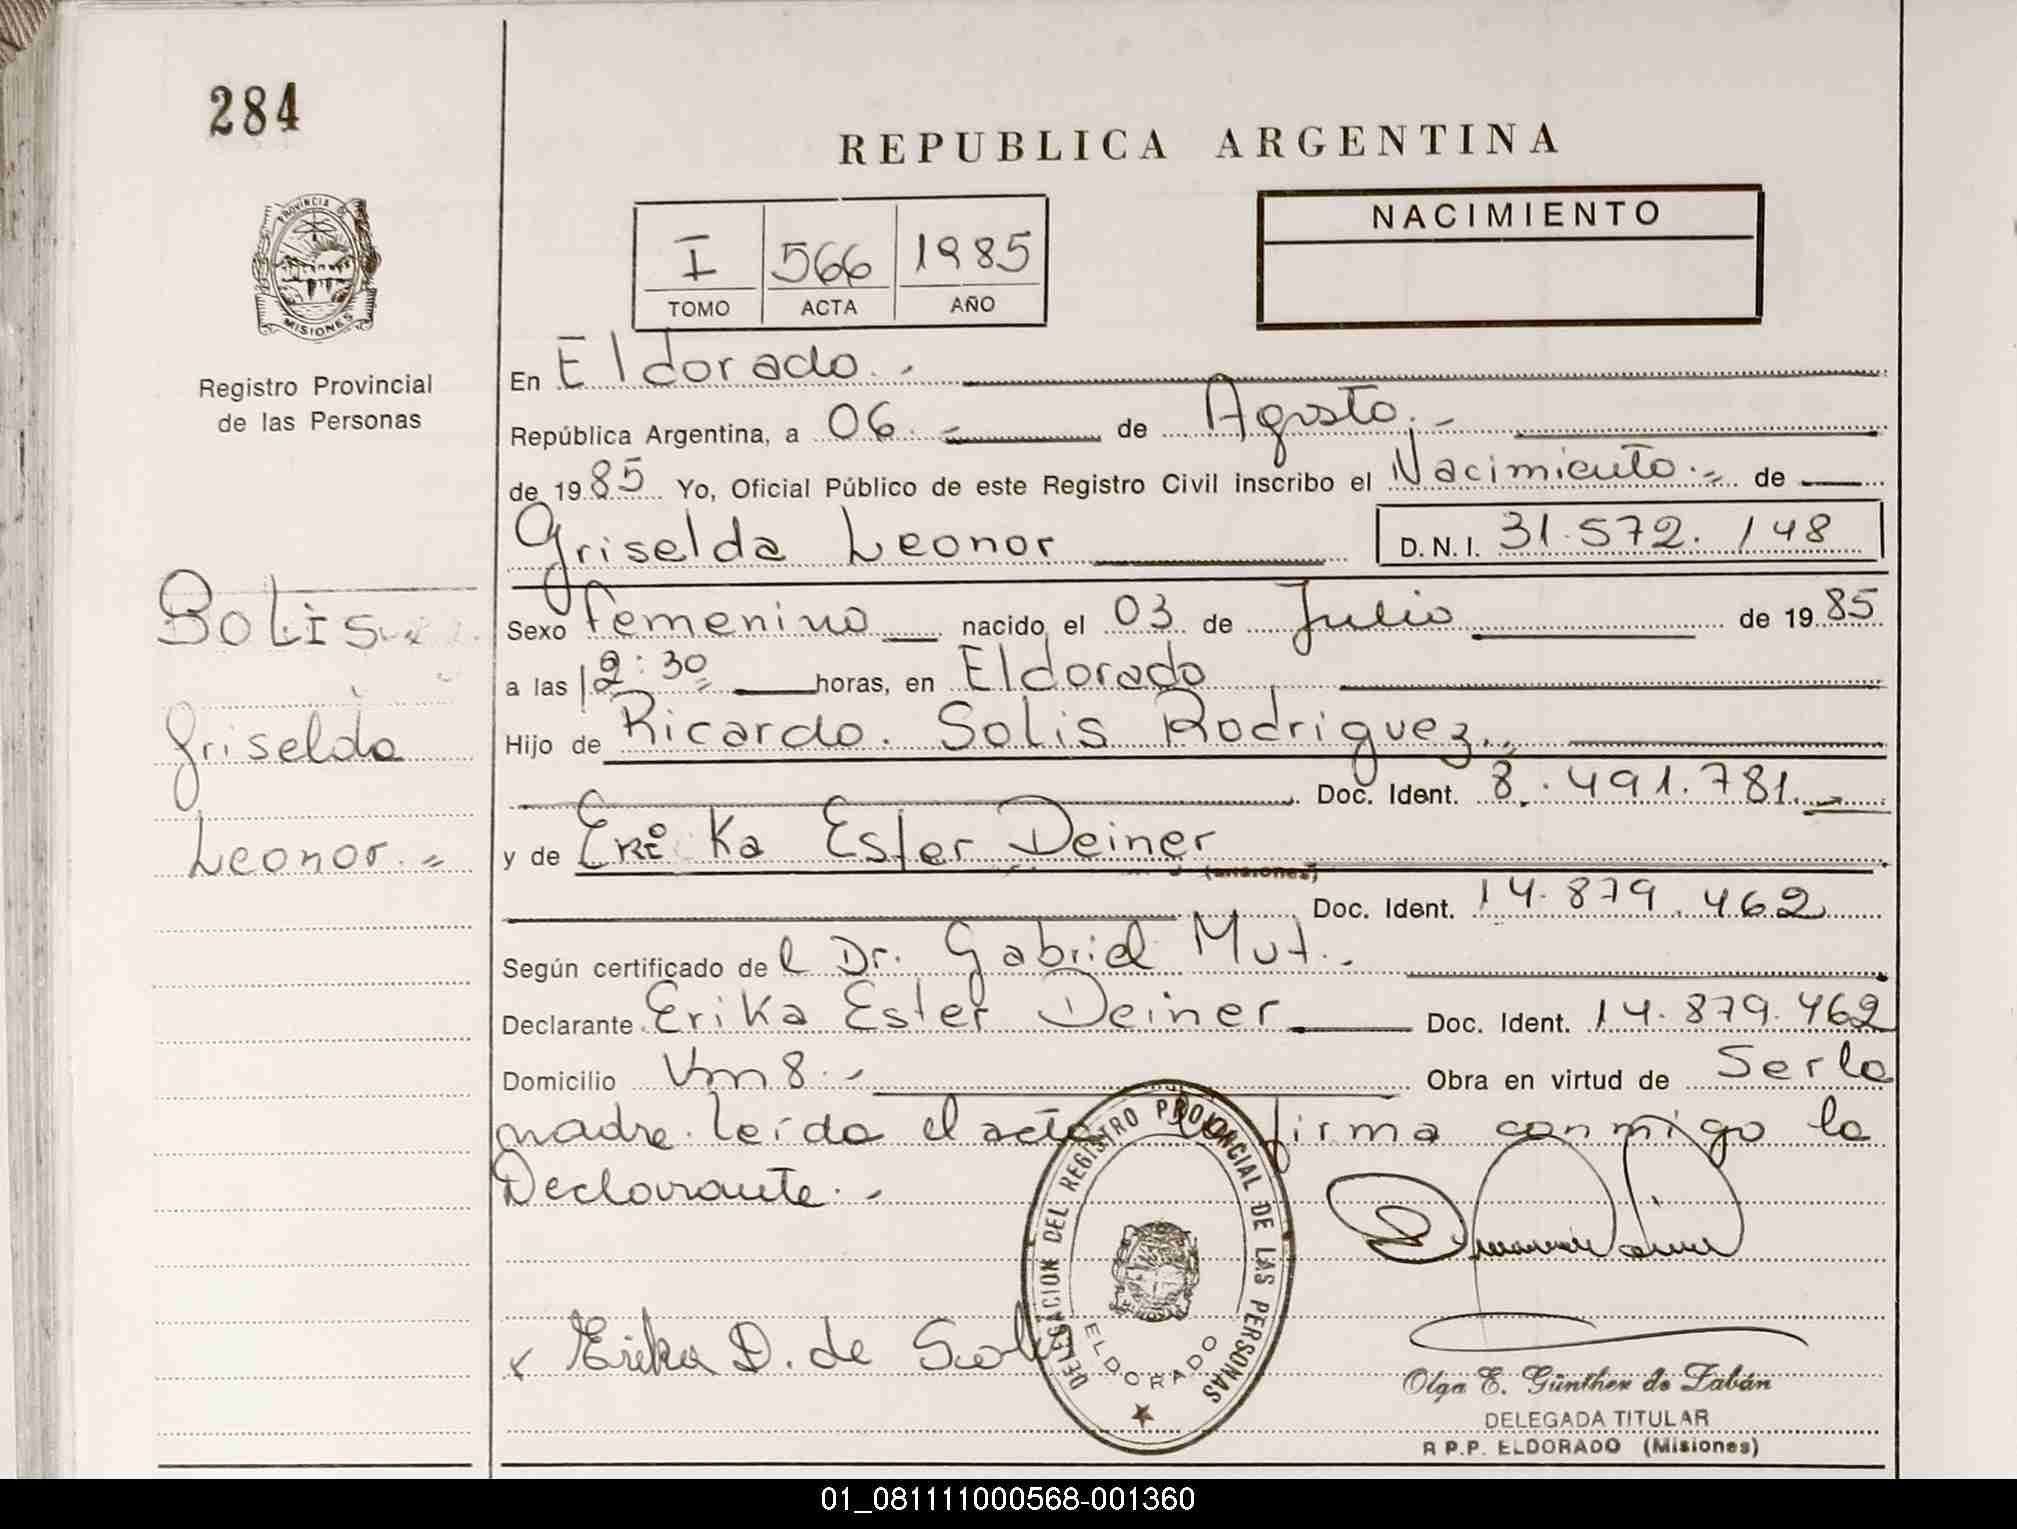 284
REPUBLICA ARGENTINA
PROVINCIA D
MISIONES
I 566 1985
TOMO ACTA AÑO
NACIMIENTO
Registro Provincial
de las Personas
En Eldorado.-
República Argentina, a 06.- de Agosto.-
de 1985 Yo, Oficial Público de este Registro Civil inscribo el Nacimiento.= de
Griselda Leonor D.N.I. 31.572.148
Solis
Griselda
Leonor.=
Sexo femenino nacido el 03 de Julio de 1985
a las 12:30 horas, en Eldorado
Hijo de Ricardo. Solis Rodriguez.
Doc. Ident. 8.491.781.-
y de Erika Ester Deiner
(Misiones)
Doc. Ident. 14.879.462
Según certificado del Dr. Gabriel Mut.-
Declarante Erika Ester Deiner Doc. Ident. 14.879.462
Domicilio Km 8.- Obra en virtud de Ser la
madre. leída el acta la firma conmigo la
Declarante.-
DELEGACION DEL REGISTRO PROVINCIAL DE LAS PERSONAS
ELDORADO
x Erika D. de Solis
Olga E. Günther de Zabán
DELEGADA TITULAR
R P.P. ELDORADO (Misiones)
01_081111000568-001360